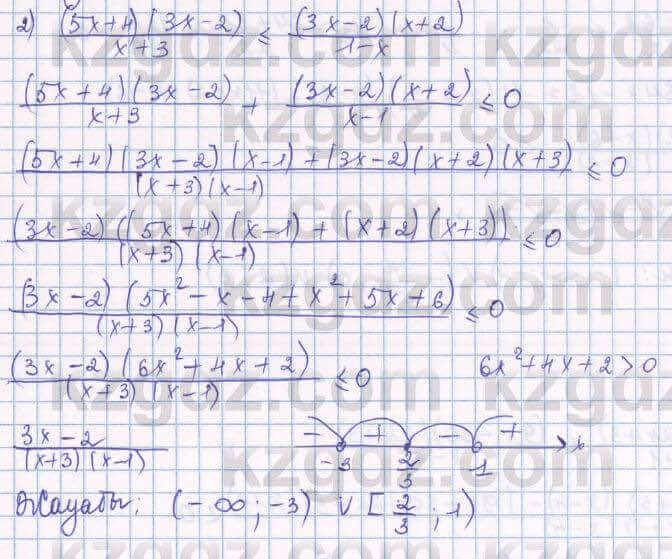 2) (5x+4)(3x-2)/x+3 ≤ (3x-2)(x+2)/1-x
(5x+4)(3x-2)/x+3 + (3x-2)(x+2)/x-1 ≤ 0
(5x+4)(3x-2)(x-1)+(3x-2)(x+2)(x+3)/(x+3)(x-1) ≤ 0
(3x-2)((5x+4)(x-1)+(x+2)(x+3))/(x+3)(x-1) ≤ 0
(3x-2)(5x²-x-4+x²+5x+6)/(x+3)(x-1) ≤ 0
(3x-2)(6x²+4x+2)/(x+3)(x-1) ≤ 0 6x²+4x+2>0
3x-2/(x+3)(x-1) - + - + -3 2/3 1 x
Жауабы: (-∞; -3) ∪ [2/3; 1)
kzgdz.com